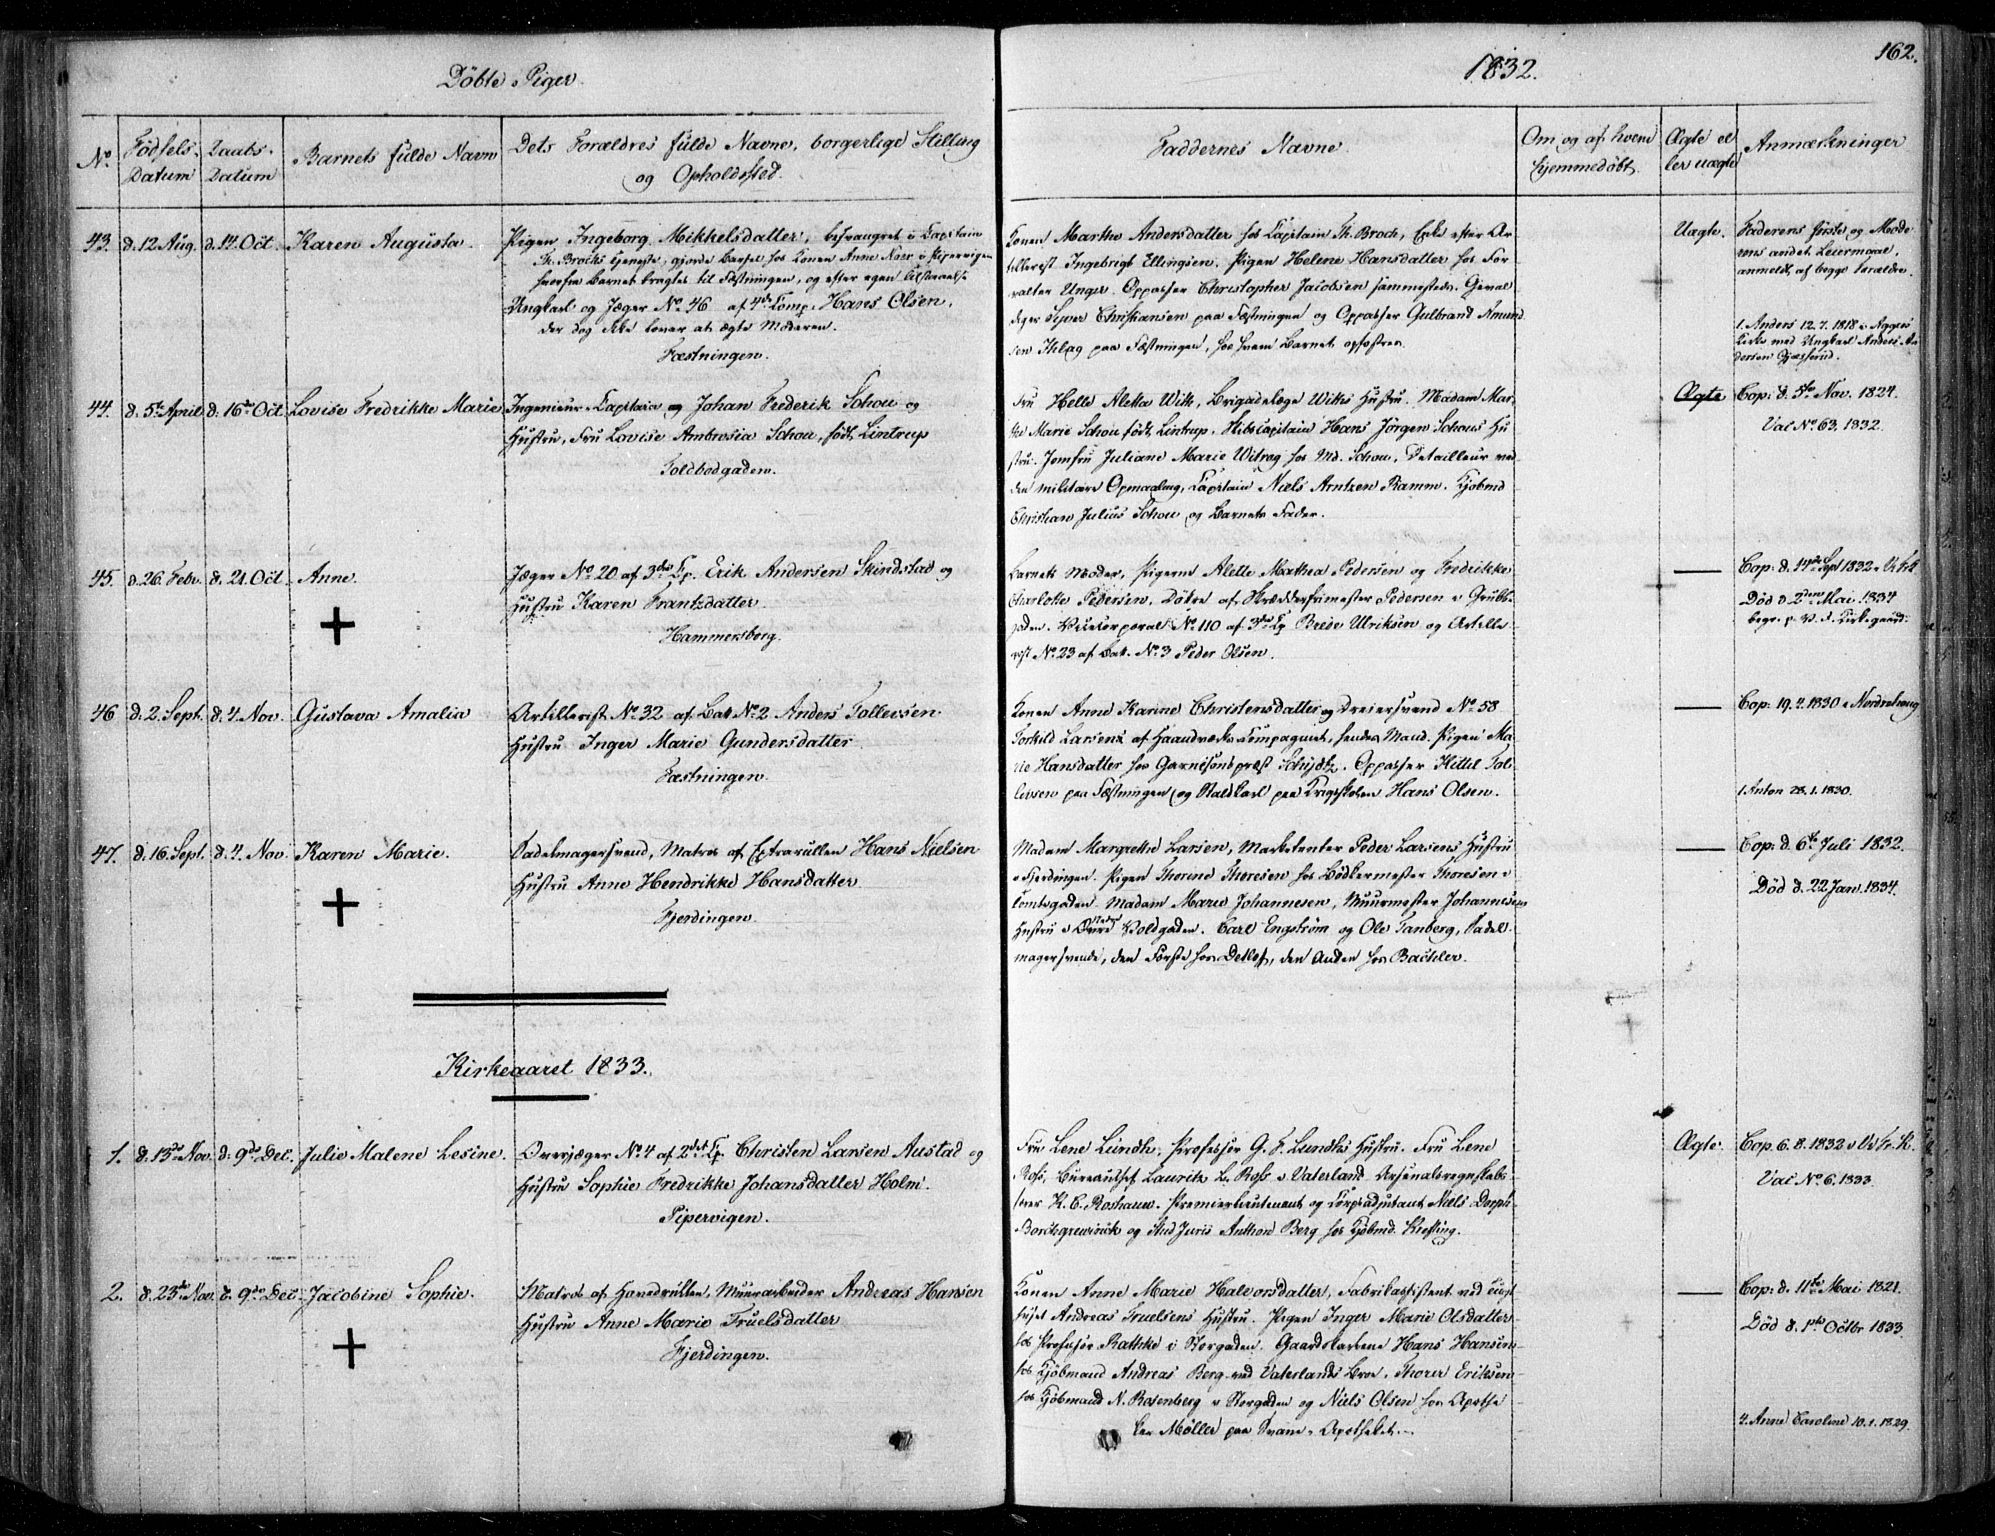 Döbte Piger.
1832.
162.
No.
Födsels Datum
Daabs Datum
Barnets fulde Navn
Dets Forældres fulde Navne, borgerlige Stilling
og Opholdssted.
Faddernes Navne.
Om og af hvem
hjemmedöbt.
Ægte el
ler uægte
Anmærkninger
43. d. 12 Aug. d. 14 Oct. Karen Augusta.
Pigen Ingeborg Mikkelsdatter, besvangret i Capitain
Th. Brocks tjeneste, gjorde Barsel hos Konen Anne Næss i Pipervigen
hvorfra Barnet bragtes til Fæstningen, og efter egen tilstaaelse
Ungkarl og Jæger No. 46 af 4de Comp. Hans Olsen,
der dog ikke lover at ægte Moderen.
Fæstningen.
Konen Marthe Andersdatter hos Capitain Th. Broch, Enke efter Ar
tillerist Ingebrigt Ellingsen. Pigen Helene Hansdatter hos For
valter Unger. Oppasser Christopher Jacobsen sammesteds. Geval
diger Syver Christiansen paa Fæstningen og Oppasser Gulbrand Amund
sen paa Fæstningen, hos hvem Barnet opfostres.
Uægte.
Faderens første og Mode
rens andet Leiermaal,
anmeldt af begge Forældre.
1. Anders 12.7.1818 i Aggers
Kirke med Ungkarl Anders An
dersen
44. d. 5te April d. 16de Oct. Lovise Fredrikke Marie
Ingenieur-Capitain og Johan Frederik Schou og
Hustru, Fru Lovise Ambrosia Schou, født Lintrup
Toldbodgaden.
Fru Helle Aletta Wiik, Brigadelæge Wiiks Hustru. Madam Mar
the Marie Schou født Lintrup, Skibscapitain Hans Jörgen Schous Hu
stru. Jomfru Juliane Marie Witrog hos Md. Schou, Detailleur ved
den militaire Opmaaling, Capitain Niels Arntzen Ramm. Kjöbmd
Christian Julius Schou og Barnets Fader.
Ægte
Cop: d. 5te Nov. 1824.
Vac No. 63. 1832.
45. d. 26. Febr. d. 21. Oct. Anne.
Jæger No. 20 af 3die Cp. Erik Andersen Skindstad og
Hustru Karen Frantzdatter.
Hammersborg.
Barnets Moder, Pigerne Alette Mathea Pedersen og Fredrikke
Charlotte Pedersen, Döttre af Skrædderfrimester Pedersen i Grubbe
gaden. Vicecorporal No. 110 af 3die Cp Brede Ulriksen og Artille
rist No. 23 af Bat. No. 3 Peder Olsen.
Cop: d. 14de Sept 1832 i
Död d 2den Mai 1834
begr. p. V. F. Kirkegaard.
46 d. 2. Sept. d. 4. Nov. Gustava Amalia
Artillerist No. 32 af Bat No. 2 Anders Tollevsen
Hustru Inger Marie Gundersdatter
Fæstningen.
Konen Anne Karine Christensdatter og Dreiersvend No. 58
Torkild Larsens af Haandværks Compagniet, hendes Mand. Pigen Ma
rie Hansdatter hos Garnisonspræst Schiödtz. Oppasser Kittil Tol
levsen paa Fæstningen og Staldkarl paa Krigsskolen Hans Olsen.
Cop: 19.4.1830 i Nordrehaug
1 Anton 28.1.1830.
47. d. 16. Sept. d. 4. Nov. Karen Marie.
Sadelmagersvend, Matros af Extrarullen Hans Nielsen
Hustru Anne Hendrikke Hansdatter
Fjerdingen.
Madam Margrethe Larsen, Marketenter Peder Larsens Hustru
i Fjerdingen. Pigen Thorine Thoresen hos Bödkermester Thoresen i
Tomtegaden. Madam Marie Johannesen, Muurmester Johannesens
Hustru i Övre Voldgaden. Carl Engström og Ole Tanberg, Sadel
magersvende, den Første hos Detlof, den Anden hos Bachler.
Cop: d. 6te Juli 1832.
Död d. 22 Jan. 1834.
Kirkeaaret 1833.
1. d. 13de Nov. d. 9de Dec. Julie Malene Lesine.
Overjæger No. 4 af 2det Cp. Christen Larsen Austad og
Hustru Sophie Fredrikke Johansdatter Holm.
Pipervigen.
Fru Lene Lundh, Professor G. F. Lundhs Hustru. Fru Lene
Ross, Bureauchef Lauritz L. Ross i Vaterland Arsenalsregnskabs
förer K. C. Roshauw. Premierlieutenant og Corpsadjutant Niels Dorph
Borchgrewinck og Stud Juris Anthon Berg hos Kjöbmd. Kiessing.
Ægte.
Cop. 6.8.1832 i Vr Fr. K.
Vac No. 6. 1833.
2. d. 23de Nov. d. 9de Dec. Jacobine Sophie.
Matros af Hovedrullen, Muurarbeider Andreas Hansen
Hustru Anne Marie Truelsdatter
Fjerdingen.
Konen Anne Marie Halvorsdatter, Fabrikassistent ved Tugt
huset Andreas Truelsens Hustru. Pigen Inger Marie Olsdatter
hos Professor Rathke i Storgaden. Gaardskarlene Hans Hansen
hos Kjöbmand Andreas Berg ved Vaterlands Broe, Thorer Eriksen
hos Kjöbmand N. Rosenberg i Storgaden og Niels Olsen hos Apothe
ker Møller paa Svane-Apotheket.
Cop: d. 11te Mai 1821.
Död d. 1ste Octbr 1833
4. Anne Caroline 10.1.1829.